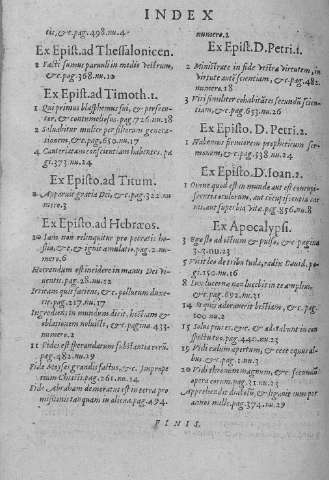 INDEX
tis, &c. pag. 498. nu. 4.
Ex Epist. ad Thessalonicen.
2 Facti sumus paruuli in medio vestrum, &c. pag. 368. nu. 10
Ex Epist. ad Timoth. 1.
1 Qui primus blasphemus fui, & persecutor, & contumeliosus. pag. 726. nu. 28
2 Saluabitur mulier per filiorum generationem, &c. pag. 650. nu. 37
4 Cauteriatam conscientiam habentes. pag. 373. nu. 24
Ex Episto. ad Titum.
2 Apparuit gratia Dei, &c. pag. 322. numero. 3
Ex Episto. ad Hebræos.
10 Iam non relinquitur pro peccatis hostia, &c. & ignis æmulatio. pag. 2. numero. 6
Horrendum est incidere in manus Dei viuentis. pag. 28. nu. 22
Irritam quis faciens, &c. pollutum duxerit. pag. 217. nu. 17
Ingrediens in mundum dicit, hostiam & oblationem noluisti, &c. pagina. 433. numero. 2
11 Fides est sperandarum substantia rerū. pag. 482. nu. 29
Fide Moyses grandis factus, &c. Improperium Christi. pag. 261. nu. 24
Fide Abraham demoratus est in terra promissionis tanquam in aliena. pag. 494.
numero. 2
Ex Epist. D. Petri. 1.
2 Ministrate in fide vestra virtutem, in virtute aut scientiam, & c. pag. 482. numero. 18
3 Viri similiter cohabitātes secundum scientiam, &c. pag. 653. nu. 26
Ex Episto. D. Petri. 2.
1 Habemus firmiorem propheticum sermonem, &c. pag. 338. nu. 24
Ex Episto. D. Ioan. 2.
Omne quod est in mundo aut est concupiscentia oculorum, aut concupiscentia carnis, aut superbia vitæ. pag. 856. nu. 8
Ex Apocalypsi.
3 Ego sto ad ostium & pulso, & c. pagina
5 Vicit leo de tribu Iuda, radix Dauid. pag. 150. nu. 16
8 lucerna non lucebit in te amplius, &c. pag. 892. nu. 31
14 Si quis adorauerit bestiam, & c. pag. 100. nu. 4
15 Solus pius es, &c. & adorabunt in conspectu tuo. pag. 440. nu. 23
19 Vidi cœlum apertum, & ecce equus albus. &c. pag. 1. nu. 3
20 Vidi thronum magnum, &c. secundū opera eorum. pag. 31. nu. 23
Apprehendit diabolū, & ligauit eum per annos mille. pag. 374. nu. 29
FINIS.